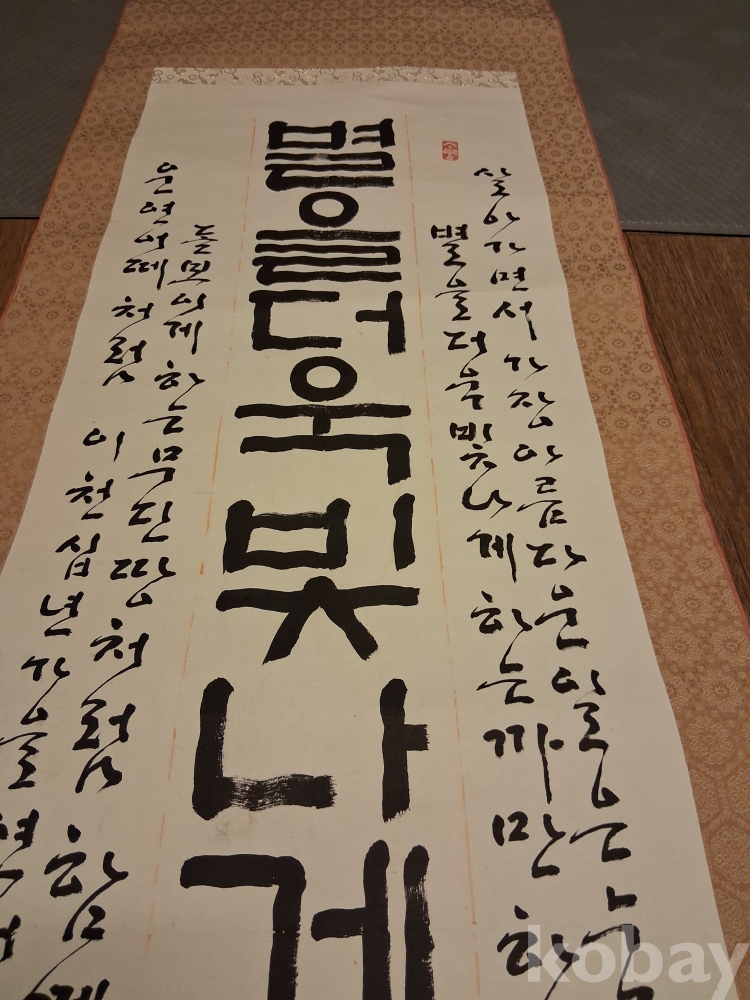 살아가면서 가장 아름다운 일은 누
별을 더욱 빛나게 하는 까만 하
별을더욱빛나게
보이게 하는 무딘 땅처럼 함께
운 연어떼처럼 이천십년 가을
kobay